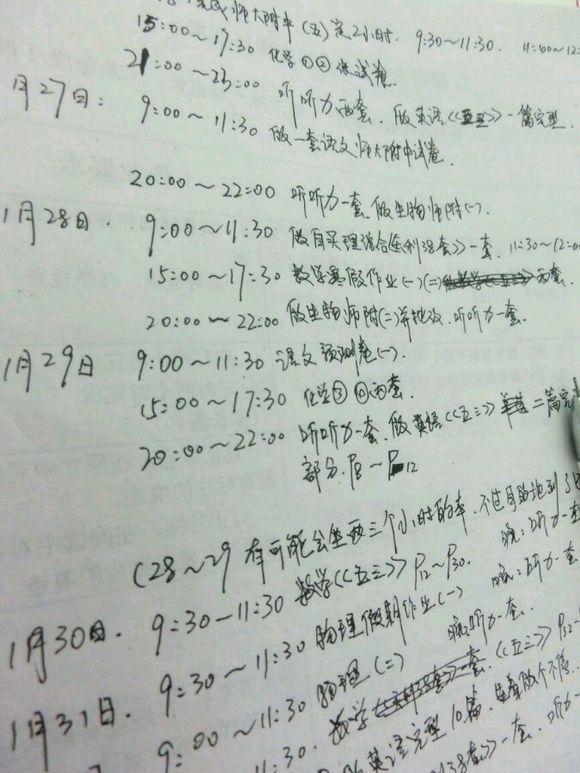 师大附中(五)完2小时. 9:30~11:30. 11:00~12:
15:00~17:30 化学①②张试卷.
21:00~23:00 听听力两套. 做英语《五三》一篇完型.
1月27日: 9:00~11:30 做一套语文师大附中试卷.
20:00~22:00 听听力一套. 做生物师附(一).
1月28日. 9:00~11:30 做自买理综合 38套》一套. 11:30~12:00
15:00~17:30 数学寒假作业(一)(二) 两套.
20:00~22:00 做生物师附(二)并批改. 听听力一套.
1月29日 9:00~11:30 语文预测卷(一).
15:00~17:30 化学③④两套.
20:00~22:00 听听力一套. 做英语《五三》 二篇完
部分. P8~P12
(28~29 有可能会坐两三个小时的车. 不过
1月30日. 9:30-11:30 数学《五三》P12~P30. 晚:听力一套
1月31日. 9:30~11:30 物理假期作业(一) 晚:听力一套
9:00~11:30 物理(二) 晚听力一套.
11:30. 数学 一套.《五三》P32-
英语完型10篇.
38套》一套. 听力